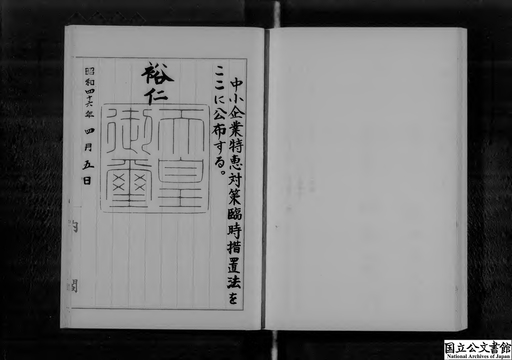 中小企業特恵対策臨時措置法を
ここに公布する。
裕仁
天皇
御璽
昭和四十六年四月五日
国立公文書館
National Archives of Japan